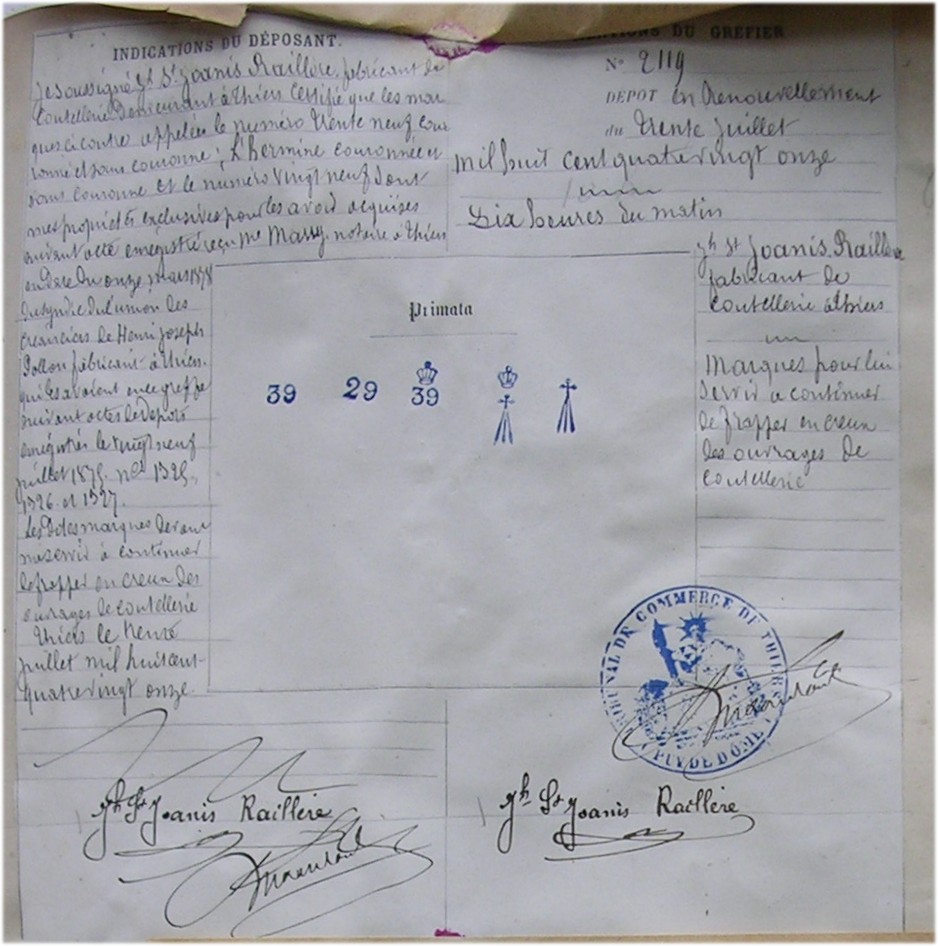 INDICATIONS DU DÉPOSANT.
Je soussigné Jh St Joanis Raillère, fabricant de
Coutellerie Demeurant à thiers Certifie que les mar
ques ci contre appelées le numéro trente neuf cou
ronné et sans couronne ; L'hermine couronnée et
sans couronne et le numéro vingt neuf sont
mes propriétés exclusives pour les avoir acquises
suivant acte enregistré reçu Me Massy, notaire à thiers
en date du onze mars 1878
du syndic de l'union des
créanciers de Henri Joseph
fabricant à thiers.
qui les avaient en ce greffe
suivant actes de depots
enregistrés le vingt neuf
juillet 1875. nos 1925,
1926 et 1927.
Les dites marques devant
me servir à continuer
de frapper en creux des
ouvrages de coutellerie
thiers le trente
juillet mil huit cent
quatre vingt onze.
DU GREFIER
N° 2119
DÉPOT en Renouvellement
du trente juillet
mil huit cent quatre vingt onze
Dix heures du matin
Jh St Joanis Raillère
fabricant de
Coutellerie à thiers
Marques pour lui
servir à continuer
de frapper en creux
des ouvrages de
coutellerie
Primata
39 29 39
TRIBUNAL DE COMMERCE DE THIERS
PUY DE DÔME
Jh St Joanis Raillère
Jh St Joanis Raillère